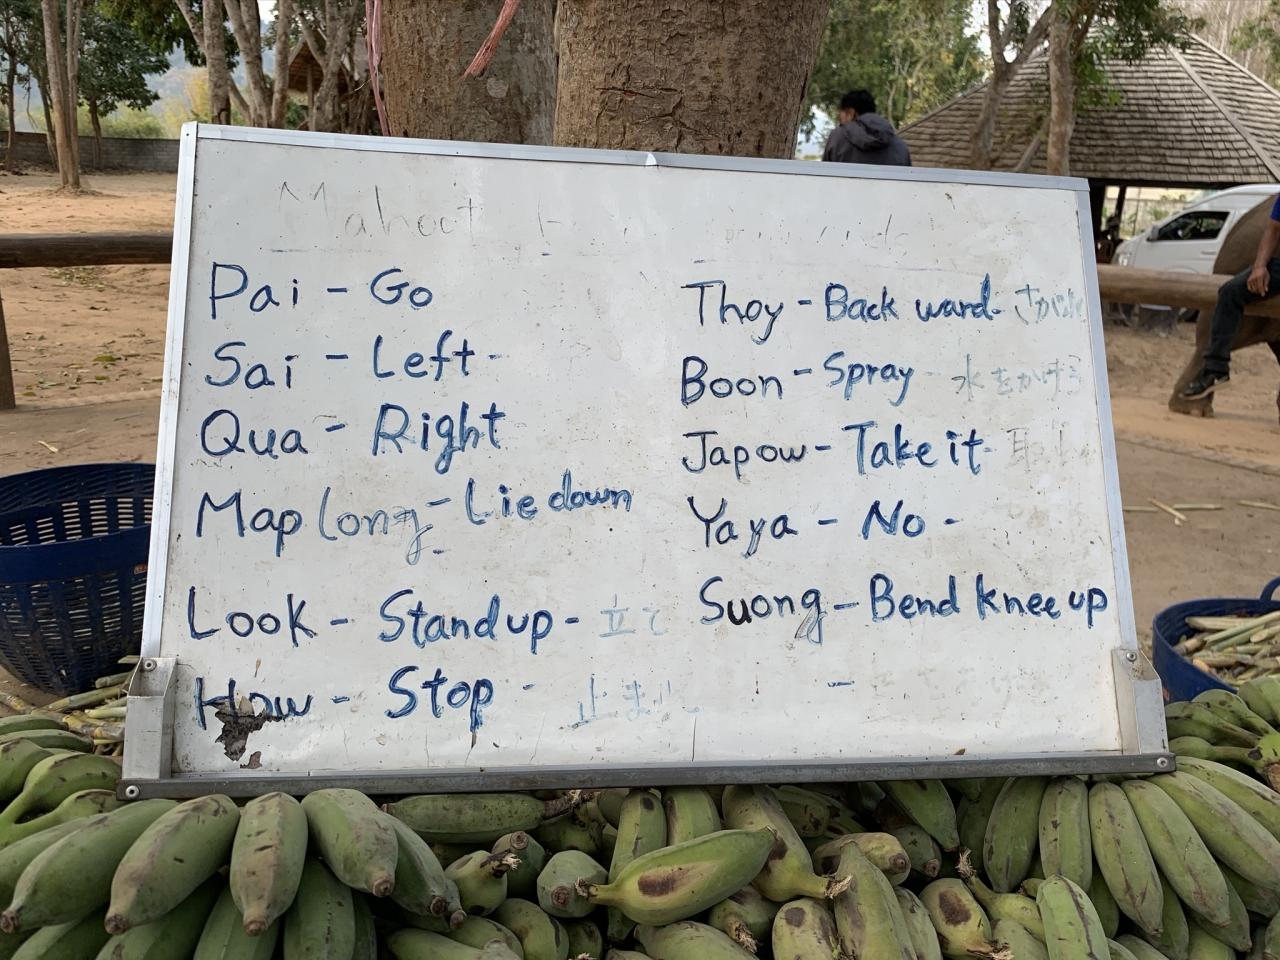 Mahoot
Pai - Go
Sai - Left -
Qua - Right
Map long - Lie down
Look - Stand up - 立て
How - Stop -
Thoy - Back ward.
Boon - Spray 水をかける
Japow - Take it -
Yaya - No -
Suong - Bend knee up
-